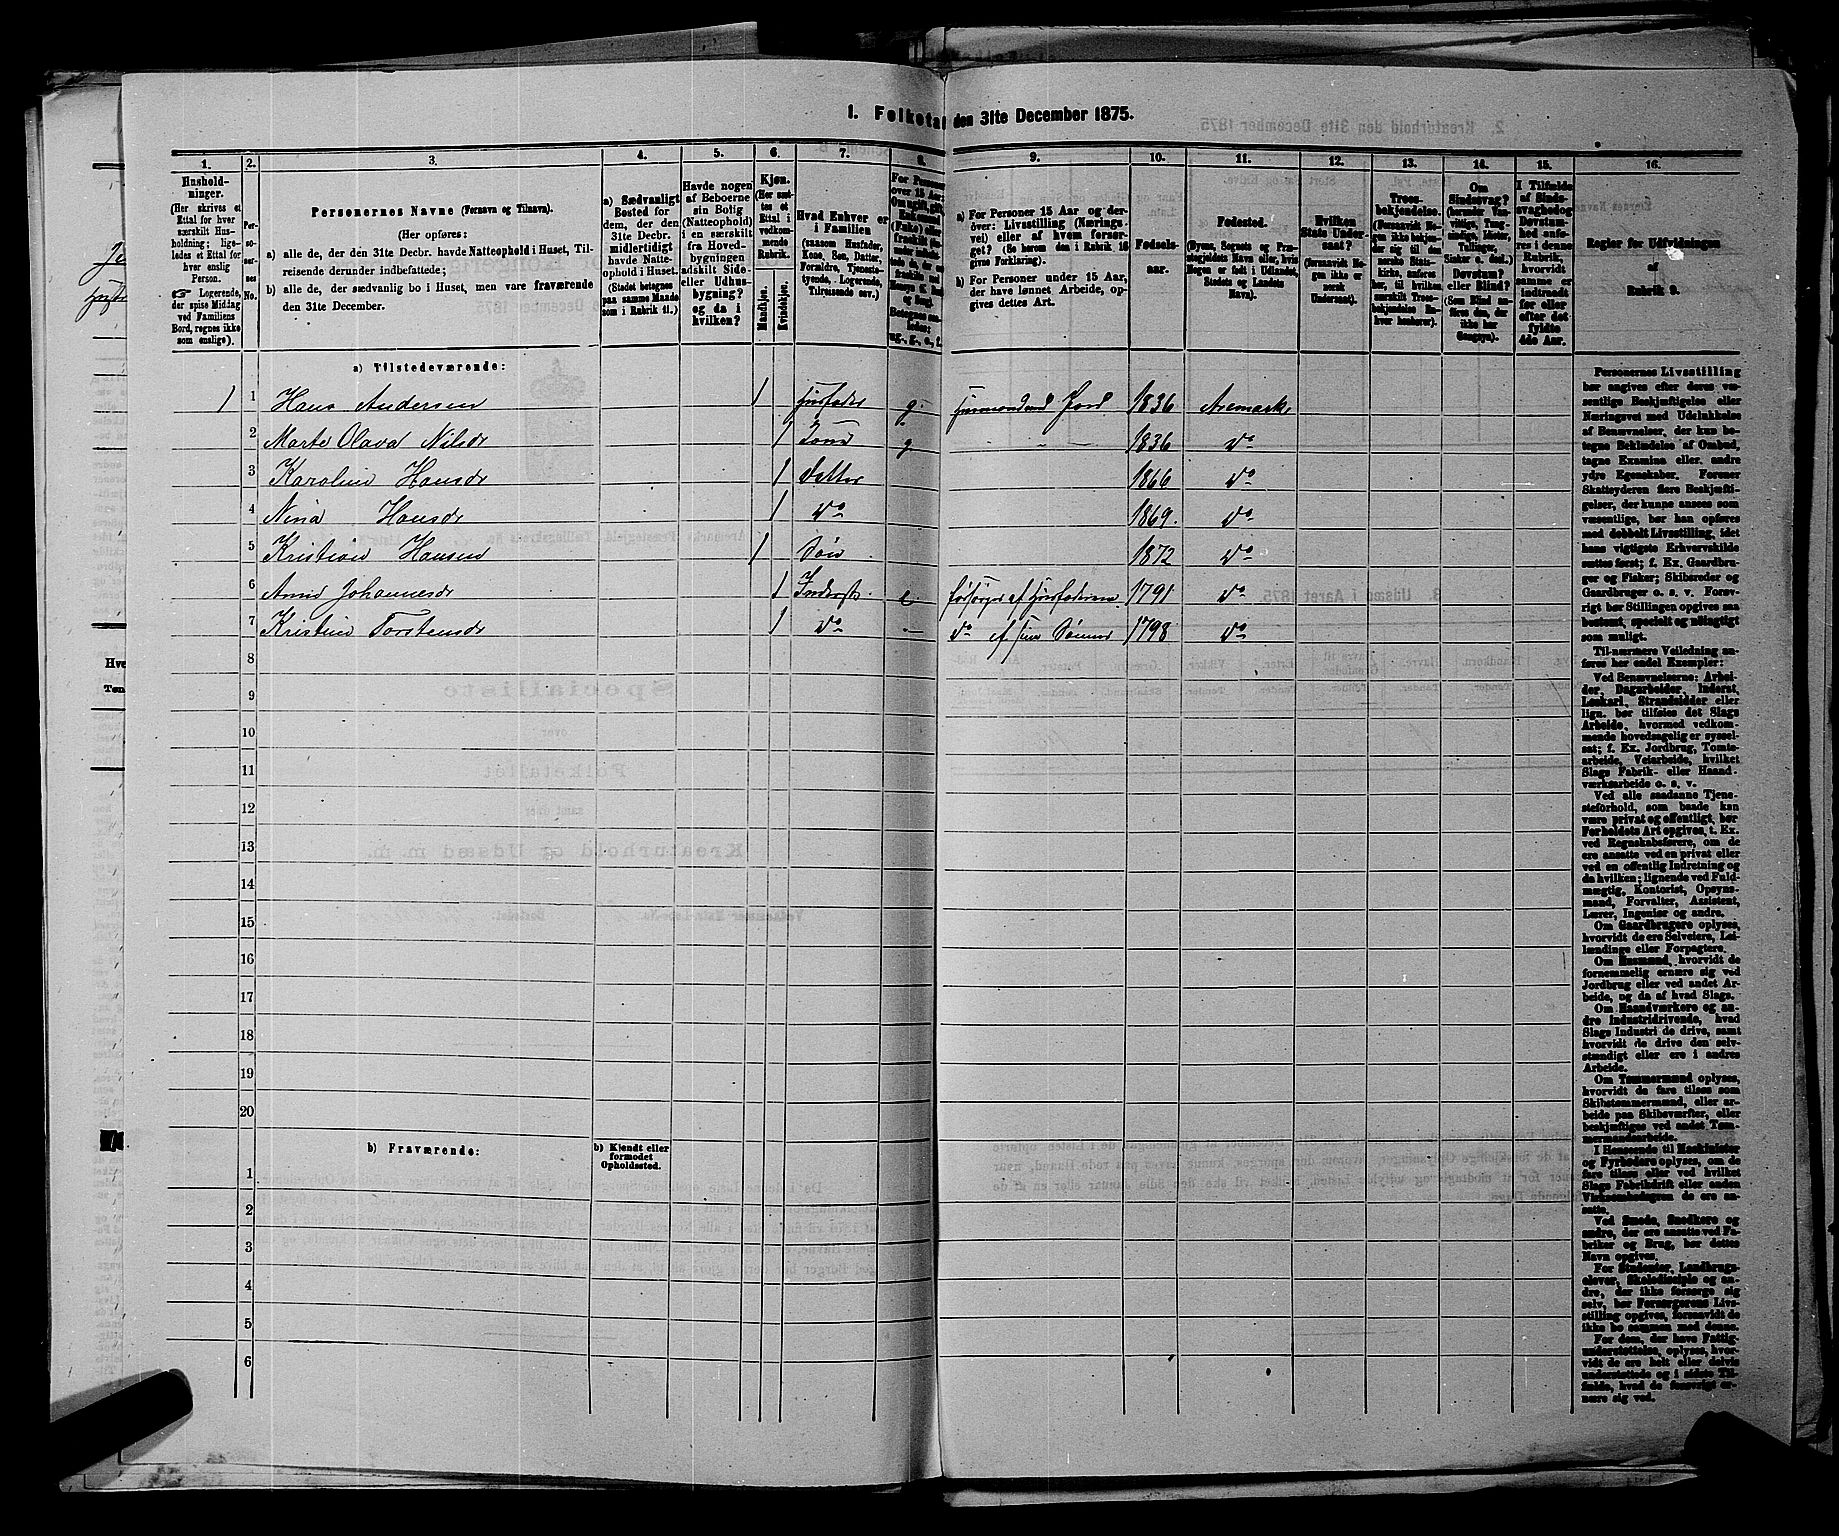 1. Folketal den 31te December 1875.
1.
2.
3.
4.
5.
6.
7.
8.
9.
10.
11.
12.
13.
14.
15.
16.
Hushold-
ninger.
(Her skrives et
Ettal for hver
særskilt Hus-
holdning; lige-
ledes et Ettal for
hver enslig
Person.
☞ Logerende,
der spise Middag
ved Familiens
Bord, regnes ikke
som enslige).
Per-
so-
ner-
nes
No.
Personernes Navne (Fornavn og Tilnavn).
(Her opføres:
a) alle de, der den 31te Decbr. havde Natteophold i Huset, Til-
reisende derunder indbefattede;
b) alle de, der sædvanlig bo i Huset, men vare fraværende
den 31te December.
a) Sædvanligt
Bosted for
dem, der den
31te Decbr.
midlertidigt
havde Natte-
ophold i Huset.
(Stedet betegnes
paa samme Maade
som i Rubrik 11.)
Havde nogen
af Beboerne
sin Bolig
(Natteophold)
i en særskilt
fra Hoved-
bygningen
adskilt Side-
eller Udhus-
bygning?
og da i
hvilken?
Kjøn.
(Her sæt-
tes et
Ettal i
vedkom-
mende
Rubrik.
Mandkjøn.
Kvindekjøn.
Hvad Enhver er
i Familien
(saasom Husfader,
Kone, Søn, Datter,
Forældre, Tjeneste-
tyende, Logerende,
Tilreisende osv.)
For Personer
over 15 Aar:
a) For Personer 15 Aar og der-
over: Livsstilling (Nærings-
vei) eller af hvem forsør-
get? (Se herom den i Rubrik 16
givne Forklaring).
b) For Personer under 15 Aar,
der have lønnet Arbeide, op-
gives dettes Art.
Fødsels-
aar.
Fødested.
(Byens, Sognets og Præ-
stegjeldets Navn eller, hvis
Nogen er født i Udlandet,
Stedets og Landets
Navn).
Hvilken
Stats Under-
saat?
(forsaavidt No-
gen ikke er
norsk
Undersaat).
Troes-
bekjendelse.
(Forsaavidt No-
gen ikke bekjen-
der sig til den
norske Stats-
kirke, anføres
her, til hvilken
særskilt Troes-
bekjendelse En-
hver henhører).
Om
Sindssvag?
Døvstum?
eller Blind?
I Tilfælde
af Sinds-
svaghed og
Døvstum-
hed anfø-
res i denne
Rubrik,
hvorvidt
samme er
indtraadt
før eller
efter det
fyldte
4de Aar.
Regler for Udfyldningen
af
Rubrik 9.
a) Tilstedeværende:
1 1 Hans Andersen 1 Husfader g. Husmand med Jord 1836 Aremark
2 Marte Olava Nilsdr 1 Kone g 1836 do
3 Karoline Hansdr 1 Datter 1866 do
4 Nina Hansdr 1 do 1869. do
5 Kristian Hansen 1 Søn 1872 do
6 Anne Johannesdr 1 Inderst e. forsørges af Husfaderen 1791 do
7 Kristine Torstensdr 1 do do af sine Sønner 1798 do
8
9
10
11
12
13
14
15
16
17
18
19
20
b) Fraværende:
b) Kjendt eller
formodet
Opholdssted.
1
2
3
4
5
6
Personernes Livsstilling
bør angives efter deres væ-
sentlige Beskjæftigelse eller
Næringsvei med Udelukkelse
af Benævnelser, der kun be-
tegne Beklædelse af Ombud,
tagne Examina eller andre
ydre Egenskaber. Forener
Skatteyderen flere Beskjæfti-
gelser, der kunne ansees som
væsentlige, bør han opføres
med dobbelt Livsstilling, idet
hans vigtigste Erhvervskilde
sættes først; f. Ex. Gaardbru-
ger og Fisker; Skibsreder og
Gaardbruger o. s. v. Forøv-
rigt bør Stillingen opgives saa
bestemt, specielt og nøiagtigt
som muligt.
Til nærmere Veiledning an-
føres her endel Exempler:
Ved Benævnelserne: Arbei-
der, Dagarbeider, Inderst,
Løskarl, Strandsidder eller
lign. bør tilføies det Slags
Arbeide, hvormed vedkom-
mende hovedsagelig er syssel-
sat; f. Ex. Jordbrug, Tomte-
arbeide, Veiarbeide, hvilket
Slags Fabrik- eller Haand-
værksarbeide o. s. v.
Ved alle saadanne Tjene-
steforhold, som baade kan
være privat og offentligt, bør
Forholdets Art opgives, t. Ex.
ved Regnskabsførere, om de
ere ansatte ved en privat eller
ved en offentlig Indretning og
da hvilken; lignende ved Fuld-
mægtig, Kontorist, Opsyns-
mand, Forvalter, Assistent,
Lærer, Ingeniør og andre.
Om Gaardbrugere oplyses,
hvorvidt de ere Selveiere, Lei-
lændinge eller Forpagtere.
Om Husmænd, hvorvidt de
fornemmelig ernære sig ved
Jordbrug eller ved andet Ar-
beide, og da af hvad Slags.
Om Haandværkere og an-
dre Industridrivende, hvad
Slags Industri de drive, samt
hvorvidt de drive den selv-
stændigt eller ere i andres
Arbeide.
Om Tømmermænd oplyses,
hvorvidt de fare tilsøs som
Skibstømmermænd, eller ar-
beide paa Skibsværfter, eller
beskjæftiges ved andet Tøm-
mermandsarbeide.
I Henseende til Maskinister
og Fyrbødere oplyses, om de
fare tilsøs eller ved hvilket
Slags Fabrikdrift eller anden
Virksomhed de ere an-
satte.
Ved Smede, Snedkere og
andre, der ere ansatte ved Fa-
briker og Brug, bør dettes
Navn opgives.
For Studenter, Landbrugs-
elever, Skoledisciple og an-
dre, der ikke forsørge sig
selv, bør Forsørgerens Livs-
stilling opgives, forsaavidt de
ikke bo sammen med denne.
For dem, der have Fattig-
understøttelse, oplyses, hvor-
vidt de ere helt eller delvis
understøttede og i sidste Til-
fælde, hvad de forøvrigt er-
nære sig ved.